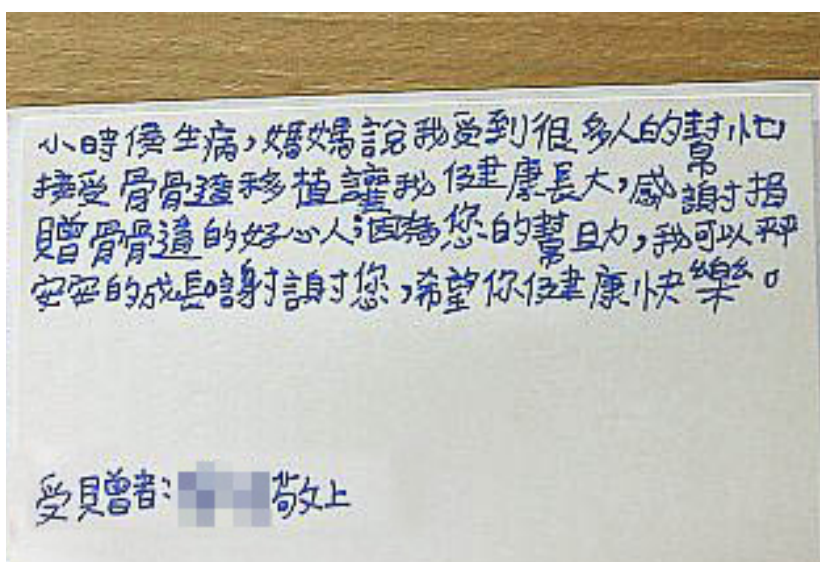 小時候生病,媽媽說我受到很多人的幫忙
接受骨骨遺移植讓我健康長大,感謝捐
贈骨骨遺的好心人;因為您的幫助,我可以平平
安安的成長謝謝您,希望你健康快樂。
受贈者: 敬上